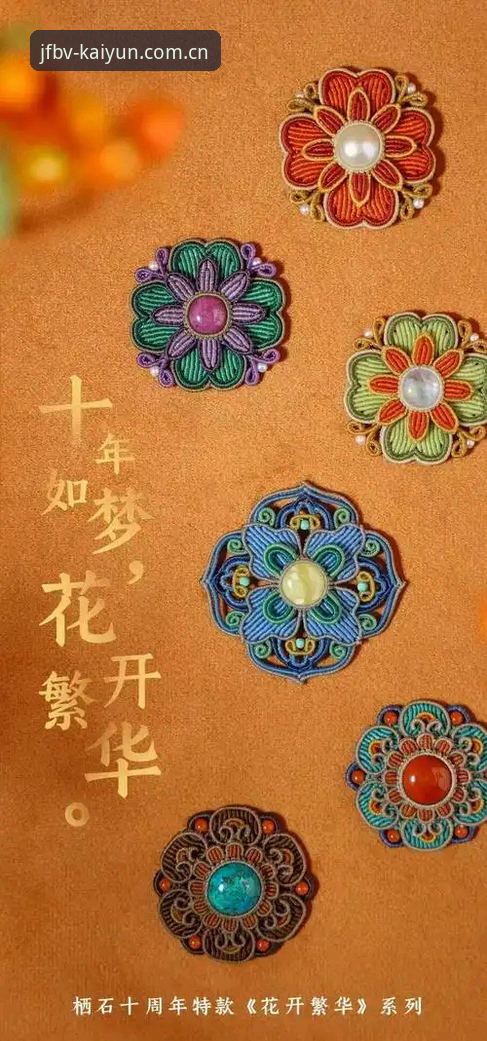 jfbv-kaiyun.com.cn
十年
如梦，
花开
繁华。
栖石十周年特款《花开繁华》系列